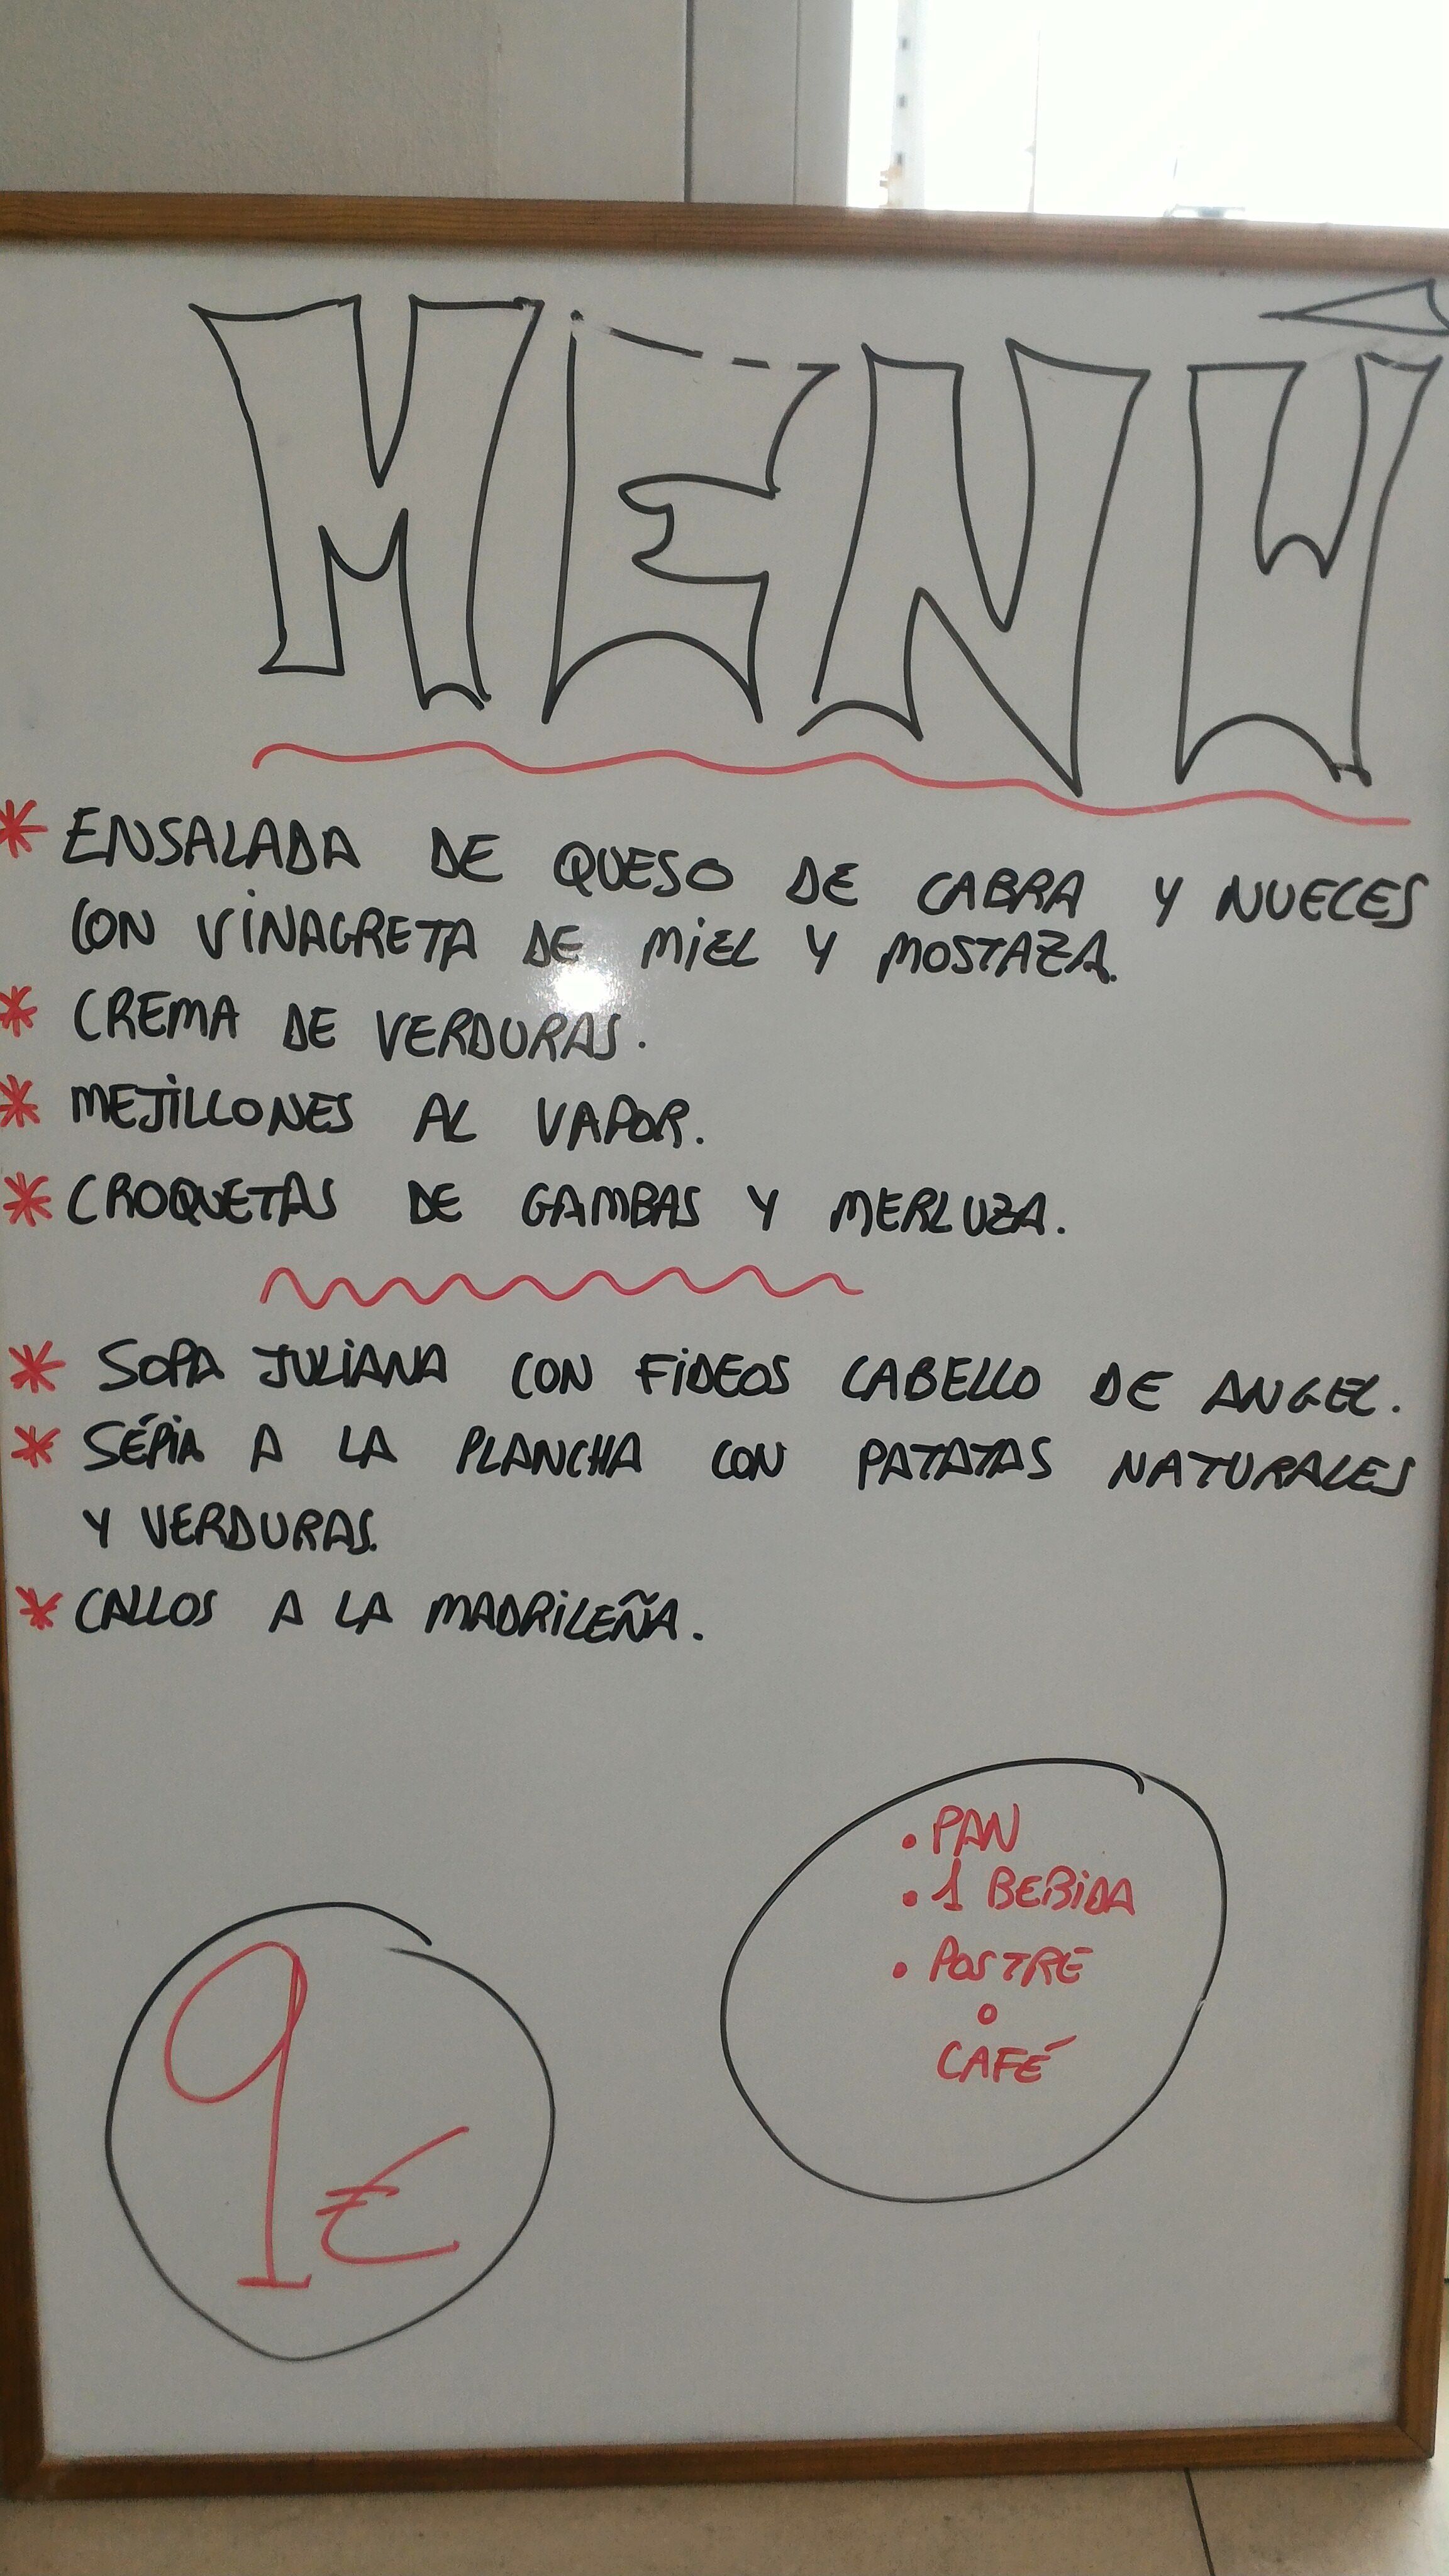 MENÚ
* ENSALADA DE QUESO DE CABRA Y NUECES
CON VINAGRETA DE MIEL Y MOSTAZA.
* CREMA DE VERDURAS.
* MEJILLONES AL VAPOR.
* CROQUETAS DE GAMBAS Y MERLUZA.
* SOPA JULIANA CON FIDEOS CABELLO DE ANGEL.
* SÉPIA A LA PLANCHA CON PATATAS NATURALES
Y VERDURAS.
* CALLOS A LA MADRILEÑA.
• PAN
• 1 BEBIDA
• POSTRE
o
CAFÉ
9€